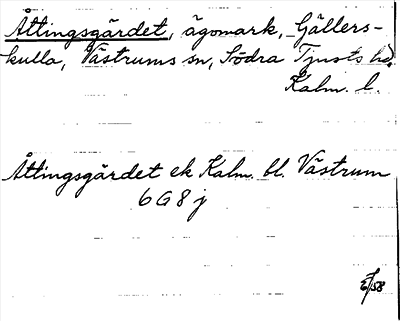 Åttingsgärdet, ägomark, Gällers-
kulla, Västrums sn, Södra Tjusts hd,
Kalm. l.
Åttingsgärdet ek Kalm. bl. Västrum
6 G 8 j
/58